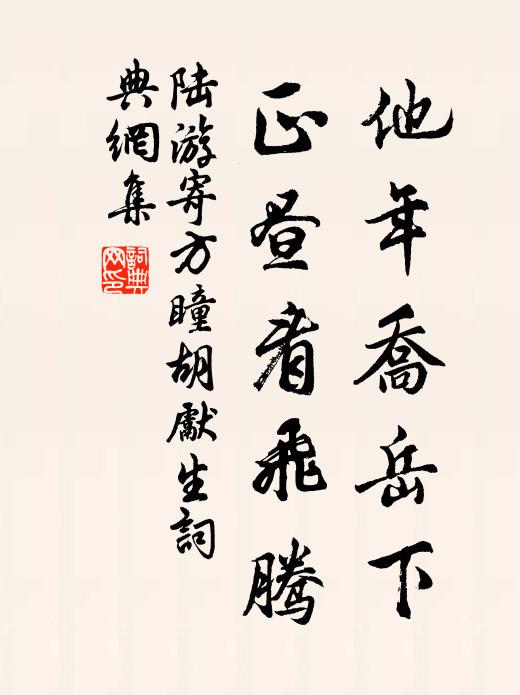 他年喬岳下
正昼看飛騰
陆游寄方瞳胡獻生詞
典網集
詞典网印